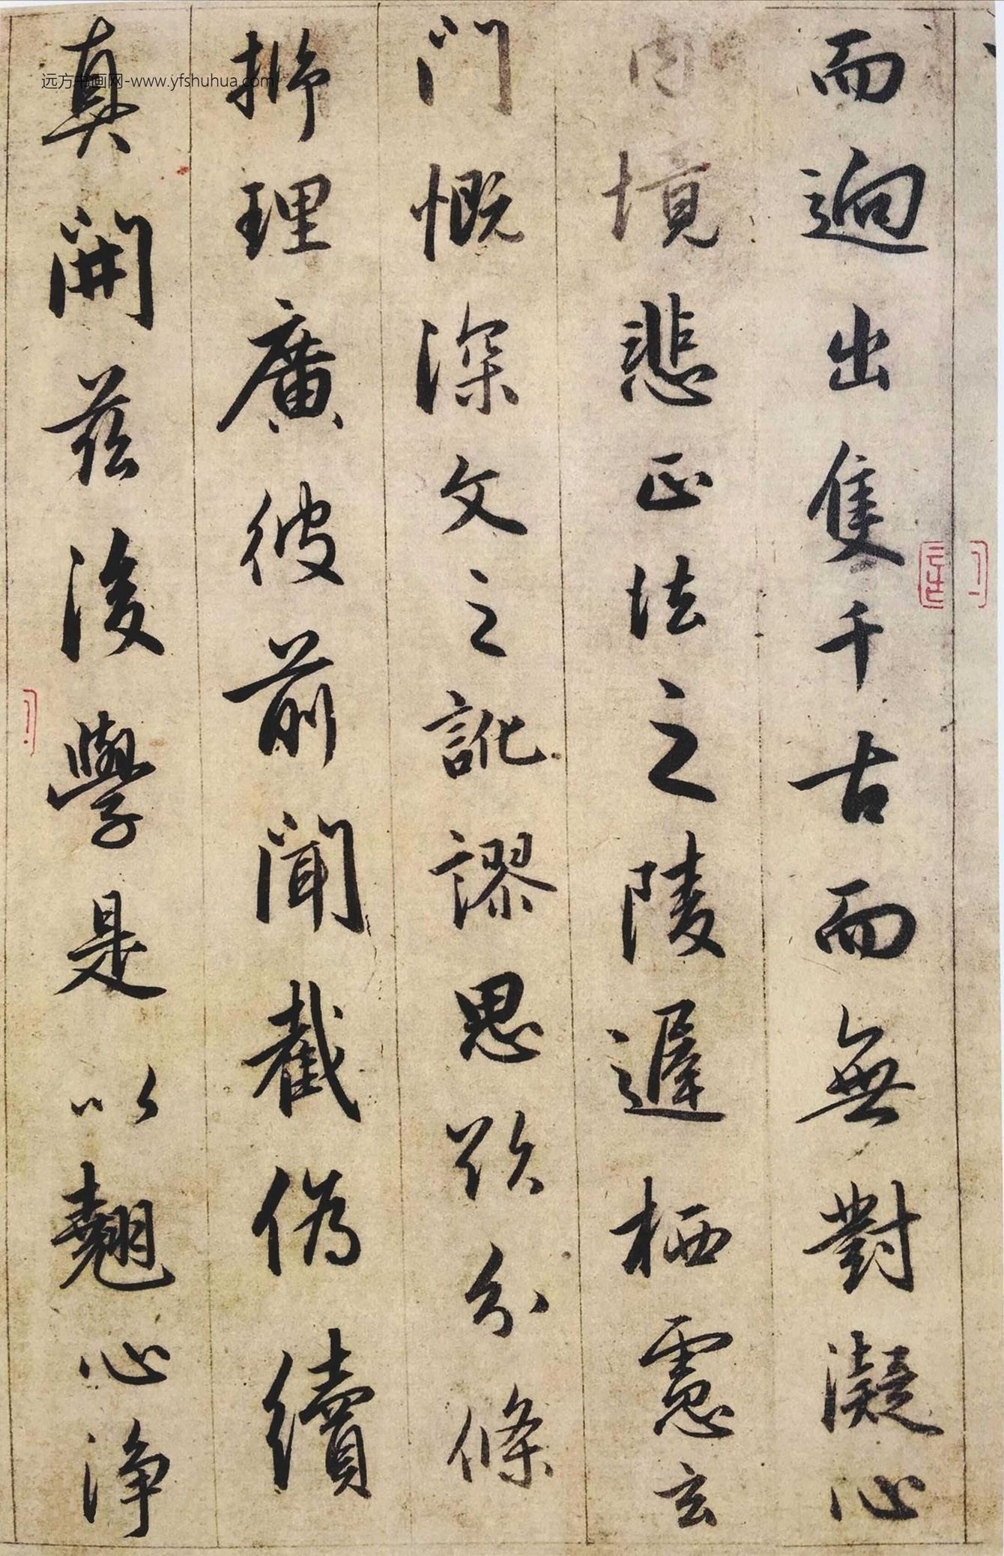 而迥出隻千古而無對凝心
内境悲正法之陵遲栖慮玄
门慨深文之訛謬思欲分條
㭊理廣彼前聞截偽續
真開兹後學是以翹心浄
远方书画网-www.yfshuhua.com